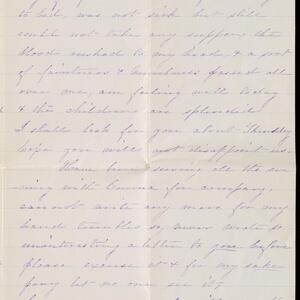 to bed, was not sick but still
could not take any supper, the
blood rushed to my head, & a sort
of faintness & numbness passed all
over me, am feeling well today
& the children are splendid
I shall look for you about Thursday
hope you will not disappoint us.
have been sewing all the eve
ning with Emma for company,
cannot write any more for my
hand trembles so, never wrote so
uninteresting a letter to you before
please excuse it & for my sake
pray let no one see it